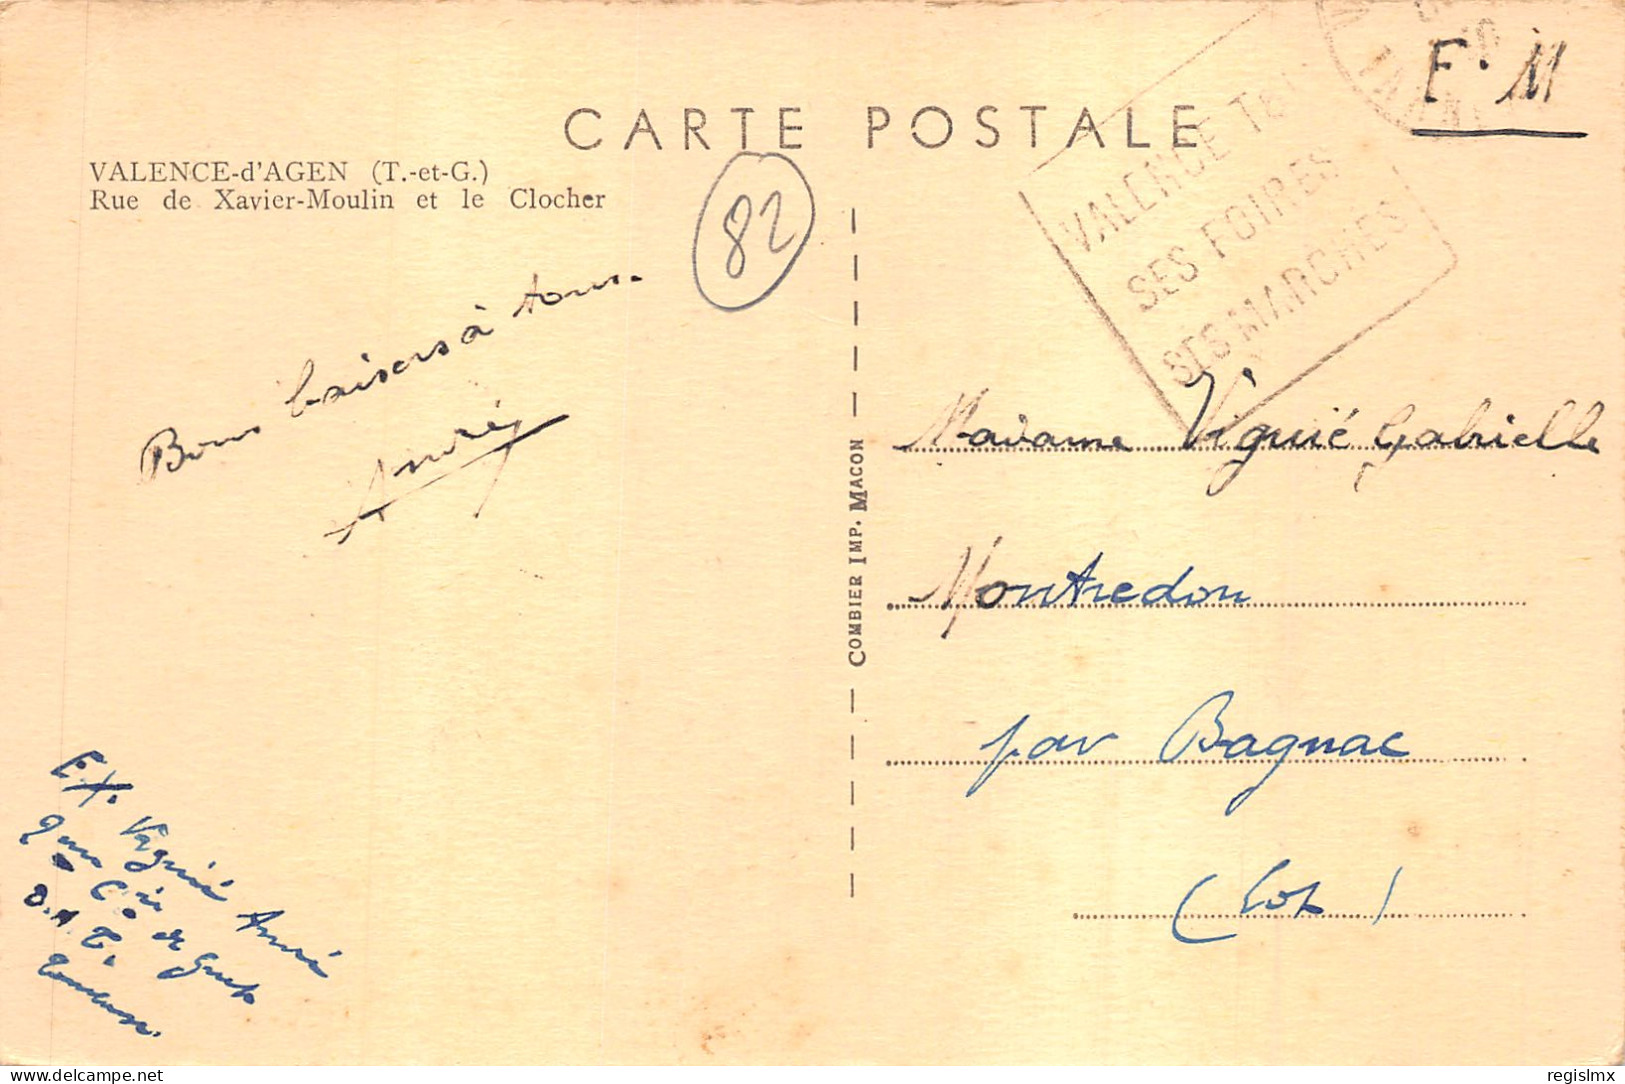 CARTE POSTALE
F. M
VALENCE-d'AGEN (T.-et-G.)
Rue de Xavier-Moulin et le Clocher
82
VALENCE
SES FOIRES
SES MARCHES
Bons baisers à tous.
André
COMBIER IMP. MACON
Madame Viguié Gabrielle
Montredon
par Bagnac
(Lot)
Ex. Viguié André
D.A.T.
Toulouse.
delcampe.net
regislmx